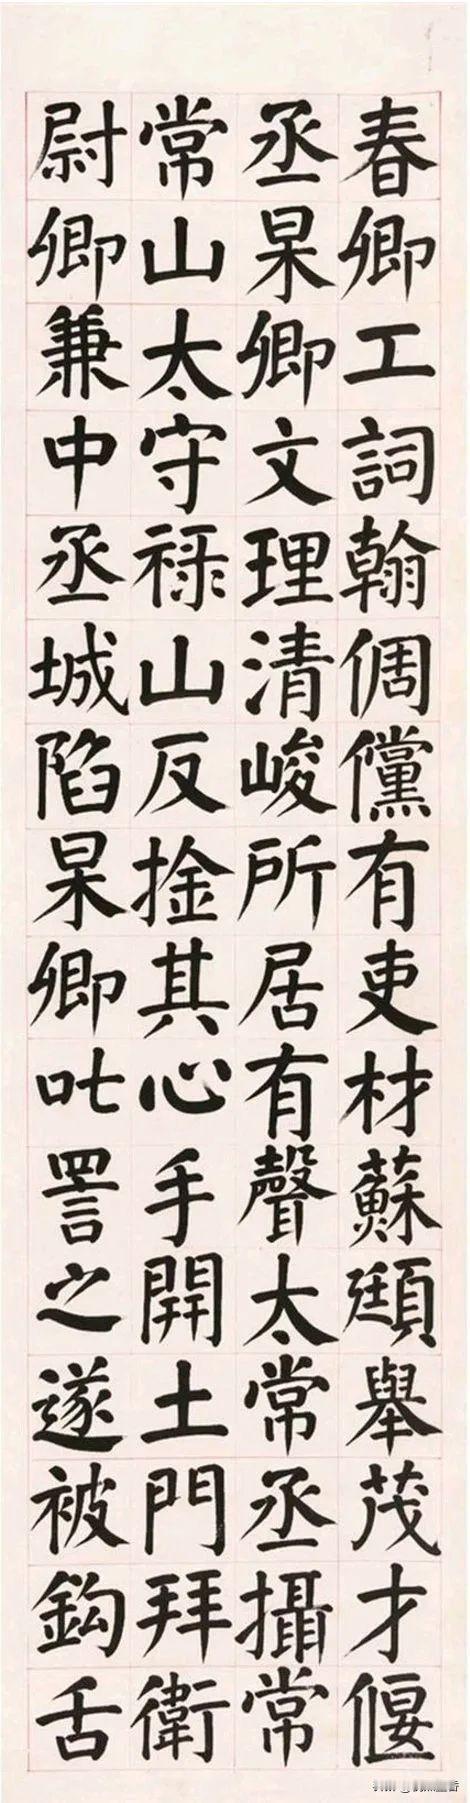 春卿工詞翰倜儻有吏材蘇頲舉茂才偃
丞杲卿文理清峻所居有聲太常丞攝常
常山太守禄山反捦其心手開土門拜衛
尉卿兼中丞城陷杲卿叱詈之遂被鈎舌